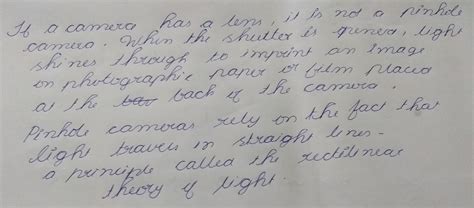 If a camera has a lens, it is not a pinhole
camera. When the shutter is opened, light
shines through to imprint an image
on photographic paper or film placed
at the back of the camera.
Pinhole cameras rely on the fact that
light travels in straight lines -
a principle called the rectilinear
theory of light.